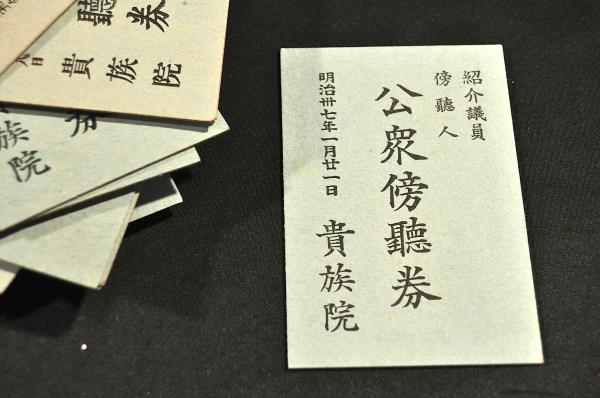 紹介議員
傍聽人
公衆傍聽券
明治卅七年一月廿一日
貴族院
聽券
日
貴族院
族院
券